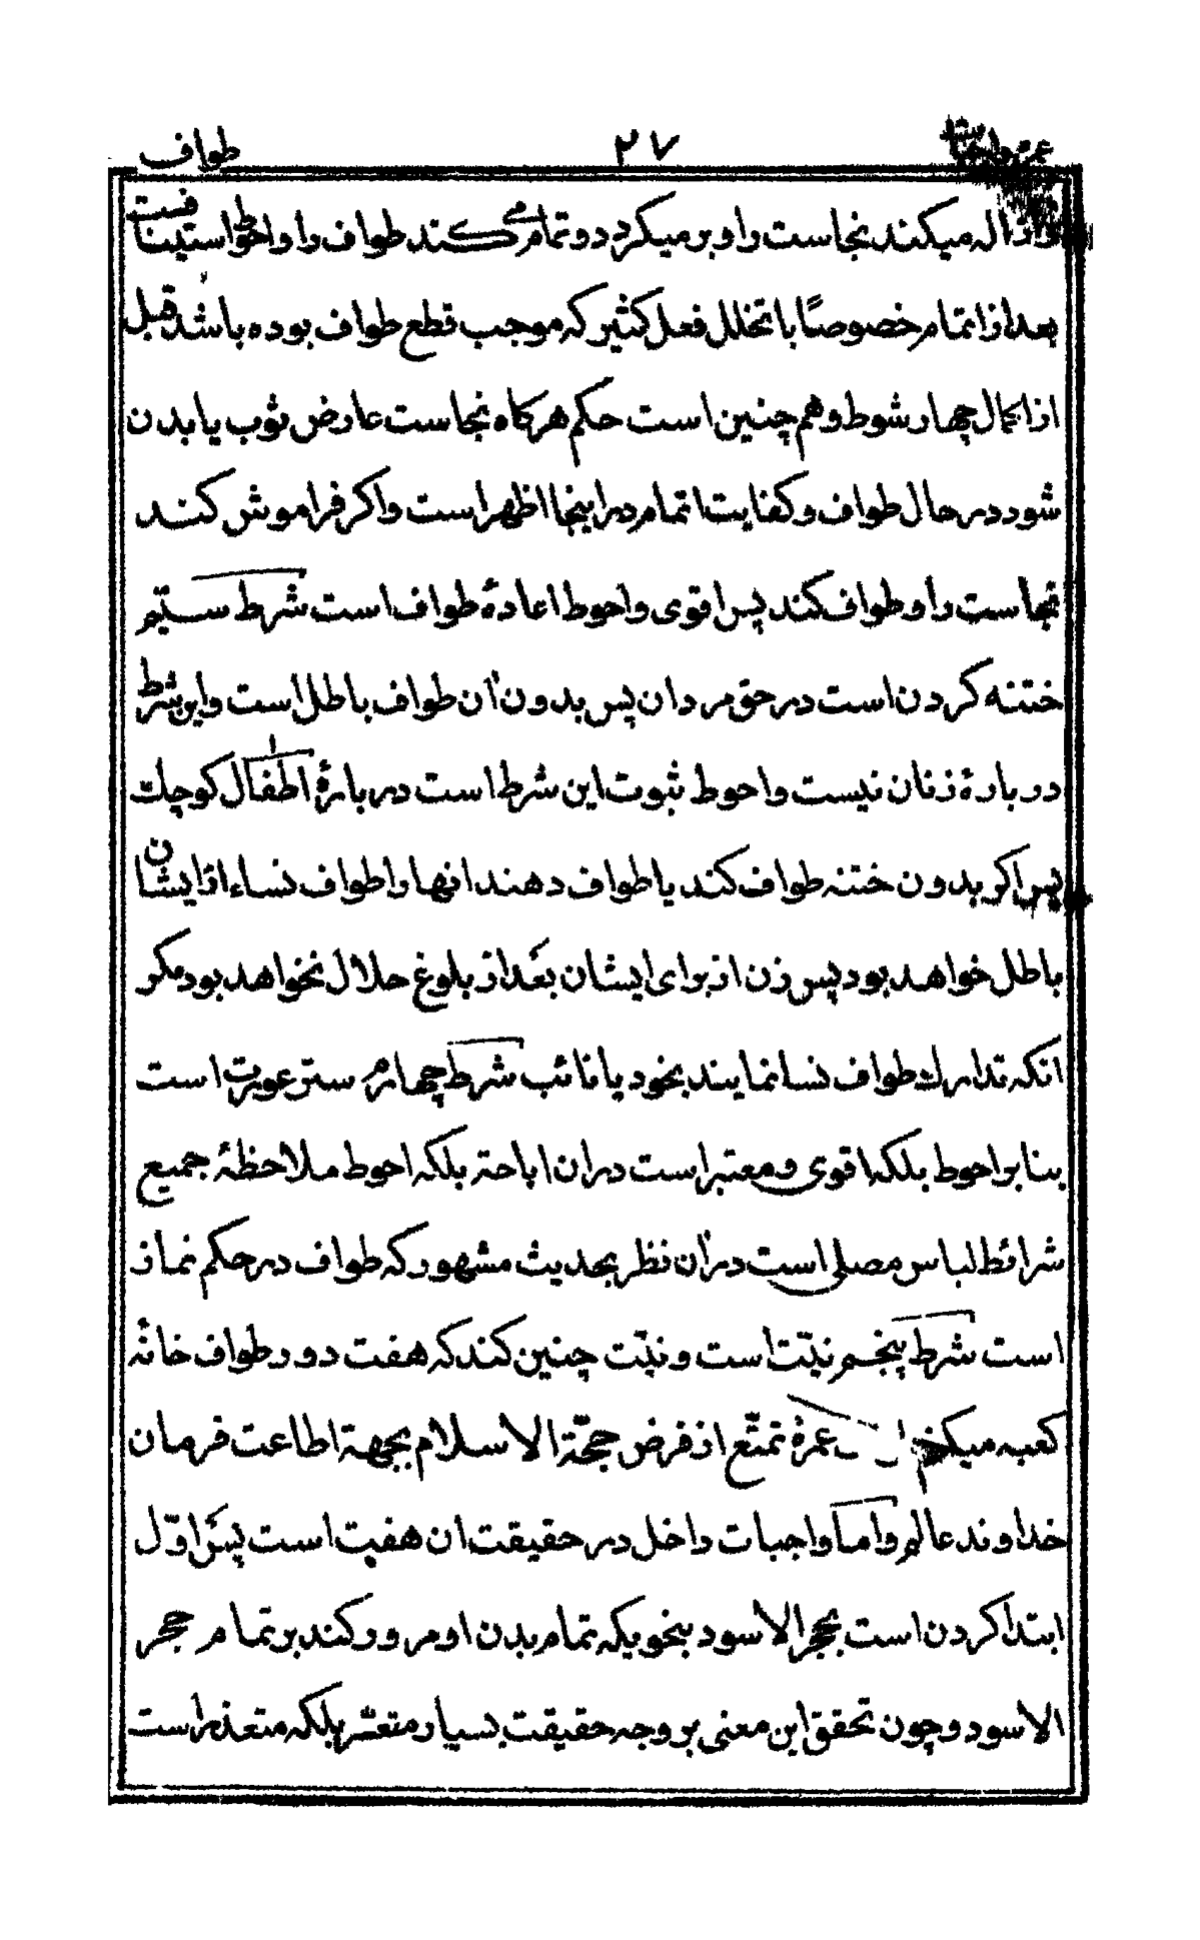 طواف ۲۷
ازاله میکند نجاست را و بر میکردد و تمام می کند طواف را و احوط استیناف است
بعد از اتمام خصوصًا با تخلل فعل کثیر که موجب قطع طواف بوده باشد قبل
از اکمال چهار شوط و هم چنین است حکم هرکاه نجاست عارض ثوب یا بدن
شود در حال طواف و کفایت اتمام در اینجا اظهر است و اکر فراموش کند
نجاست را و طواف کند پس اقوی و احوط اعادهٔ طواف است شرط سیّم
ختنه کردن است در حق مردان پس بدون ان طواف باطل است و این شرط
در بارهٔ زنان نیست و احوط ثبوت این شرط است در بارهٔ اطفال کوچك
پس اکر بدون ختنه طواف کند یا طواف دهند انها را طواف نساء از ایشان
باطل خواهد بود پس زن از برای ایشان بعد از بلوغ حلال نخواهد بود مکر
انکه تدارك طواف نسا نمایند بخود یا نائب شرط چهارم ستر عورت است
بنا بر احوط بلکه اقوی و معتبر است در ان اباحة بلکه احوط ملاحظهٔ جمیع
شرائط لباس مصلی است در ان نظر بحدیث مشهور که طواف در حکم نماز
است شرط پنجم نیّت است و نیّت چنین کند که هفت دور طواف خانهٔ
کعبه میکنم عمرهٔ تمتّع از فرض حجّة الاسلام بجهة اطاعت فرمان
خداوند عالم و اما واجبات داخل در حقیقت ان هفت است پس اوّل
ابتدا کردن است بحجر الاسود بنحویکه تمام بدن او مرور کند بر تمام حجر
الاسود و چون تحقق این معنی بر وجه حقیقت بسیار متعسّر بلکه متعذر است